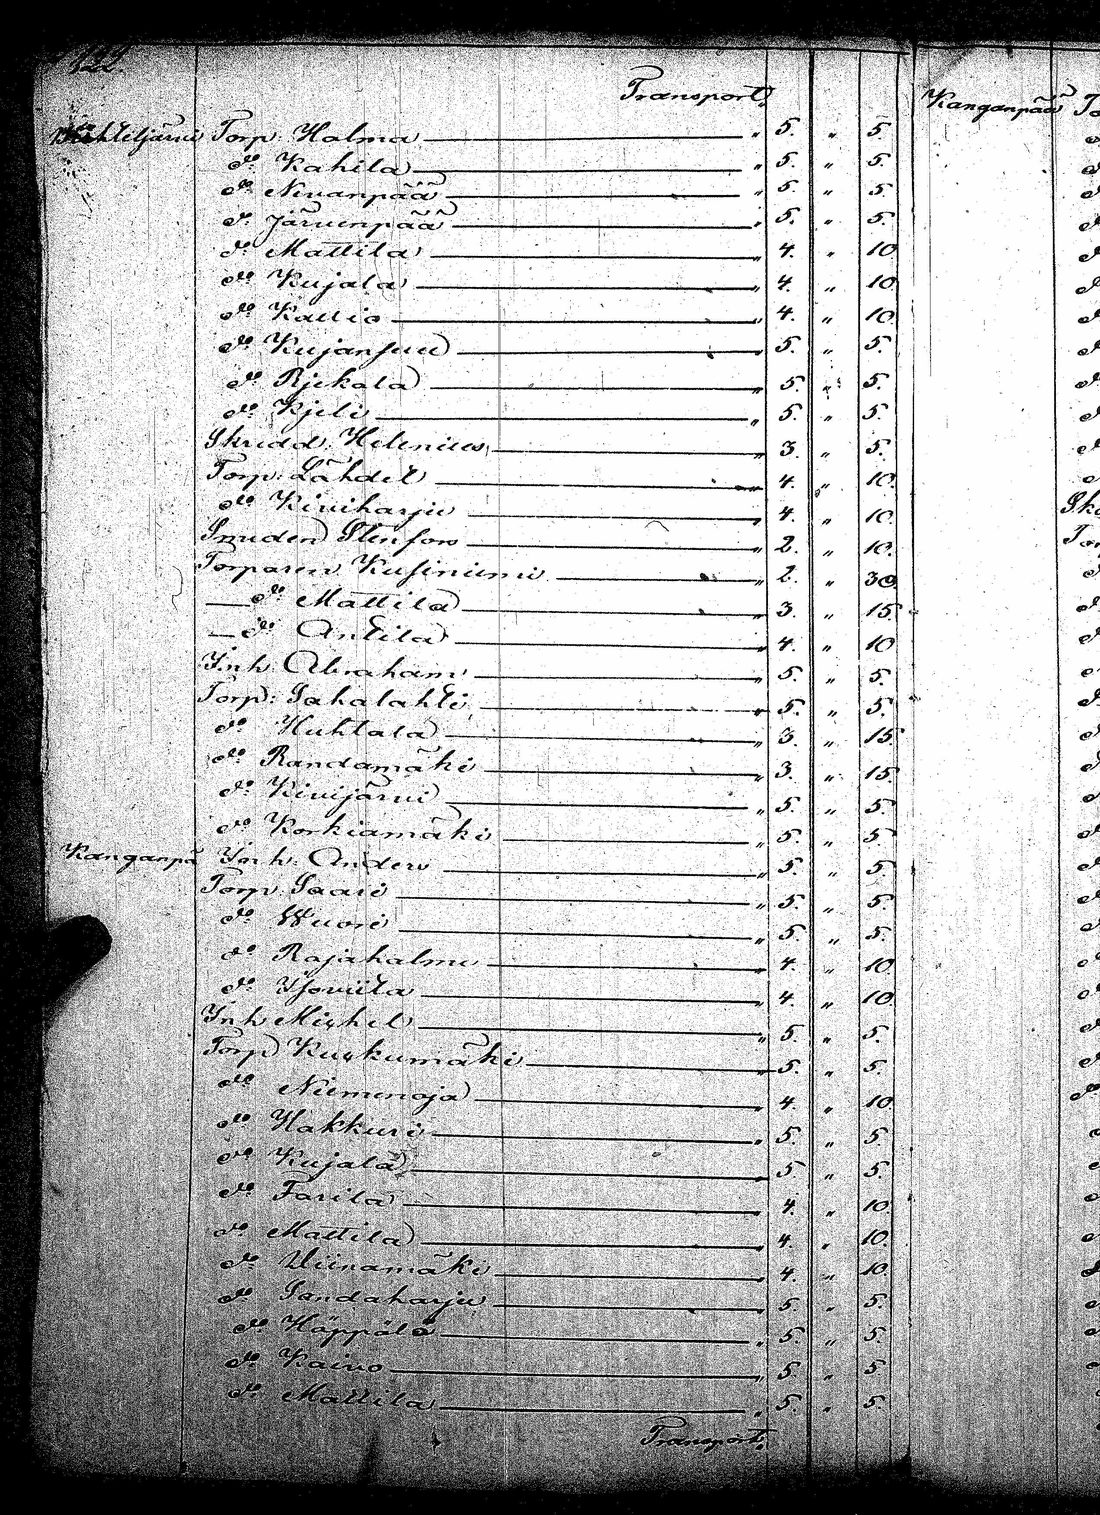 122.
Transport
Wihteljärvi Torp: Holma " 5. " 5.
do Kahila " 5. " 5.
do Nivanpää " 5. " 5.
do Järvenpää " 5. " 5.
do Mattila " 4. " 10
do Kujala " 4. " 10.
do Kallio " 4. " 10.
do Kujansuu " 5. " 5.
do " 5. " 5.
do Kjeli " 5. " 5.
Skrädd: Helenius " 3. " 5.
Torp: Lähdet " 4. " 10.
do Kiviharju " 4. " 10.
Smeden Stenfors " 2. " 10.
Torparen Kusiniemi " 2. " 30
do Mattila " 3. " 15.
do Antila " 4. " 10
Inh: Abraham " 5. " 5.
Torp: Sahalahti " 5. " 5.
do Huhtala " 3. " 15.
do Randamäki " 3. " 15.
do Kivijärvi " 5. " 5.
do Korkiamäki " 5. " 5.
Kanganpä Inh: Anders " 5. " 5.
Torp: Saari " 5. " 5.
do Wuori " 5. " 5.
do Rajahalme " 4. " 10.
do Isoviita " 4. " 10.
Inh Michel " 5. " 5.
Torp Kuckumäki " 5. " 5.
do Niemenoja " 4. " 10
do Hakkuri " 5. " 5.
do Kujala " 5. " 5.
do Farila " 4. " 10.
do Mattila " 4. " 10.
do Viinamäki " 4. " 10.
do Sandaharju " 5. " 5.
do Häppälä " 5. " 5.
do Kaivo " 5. " 5.
do Mattila " 5. " 5.
Transport
Kanganpää